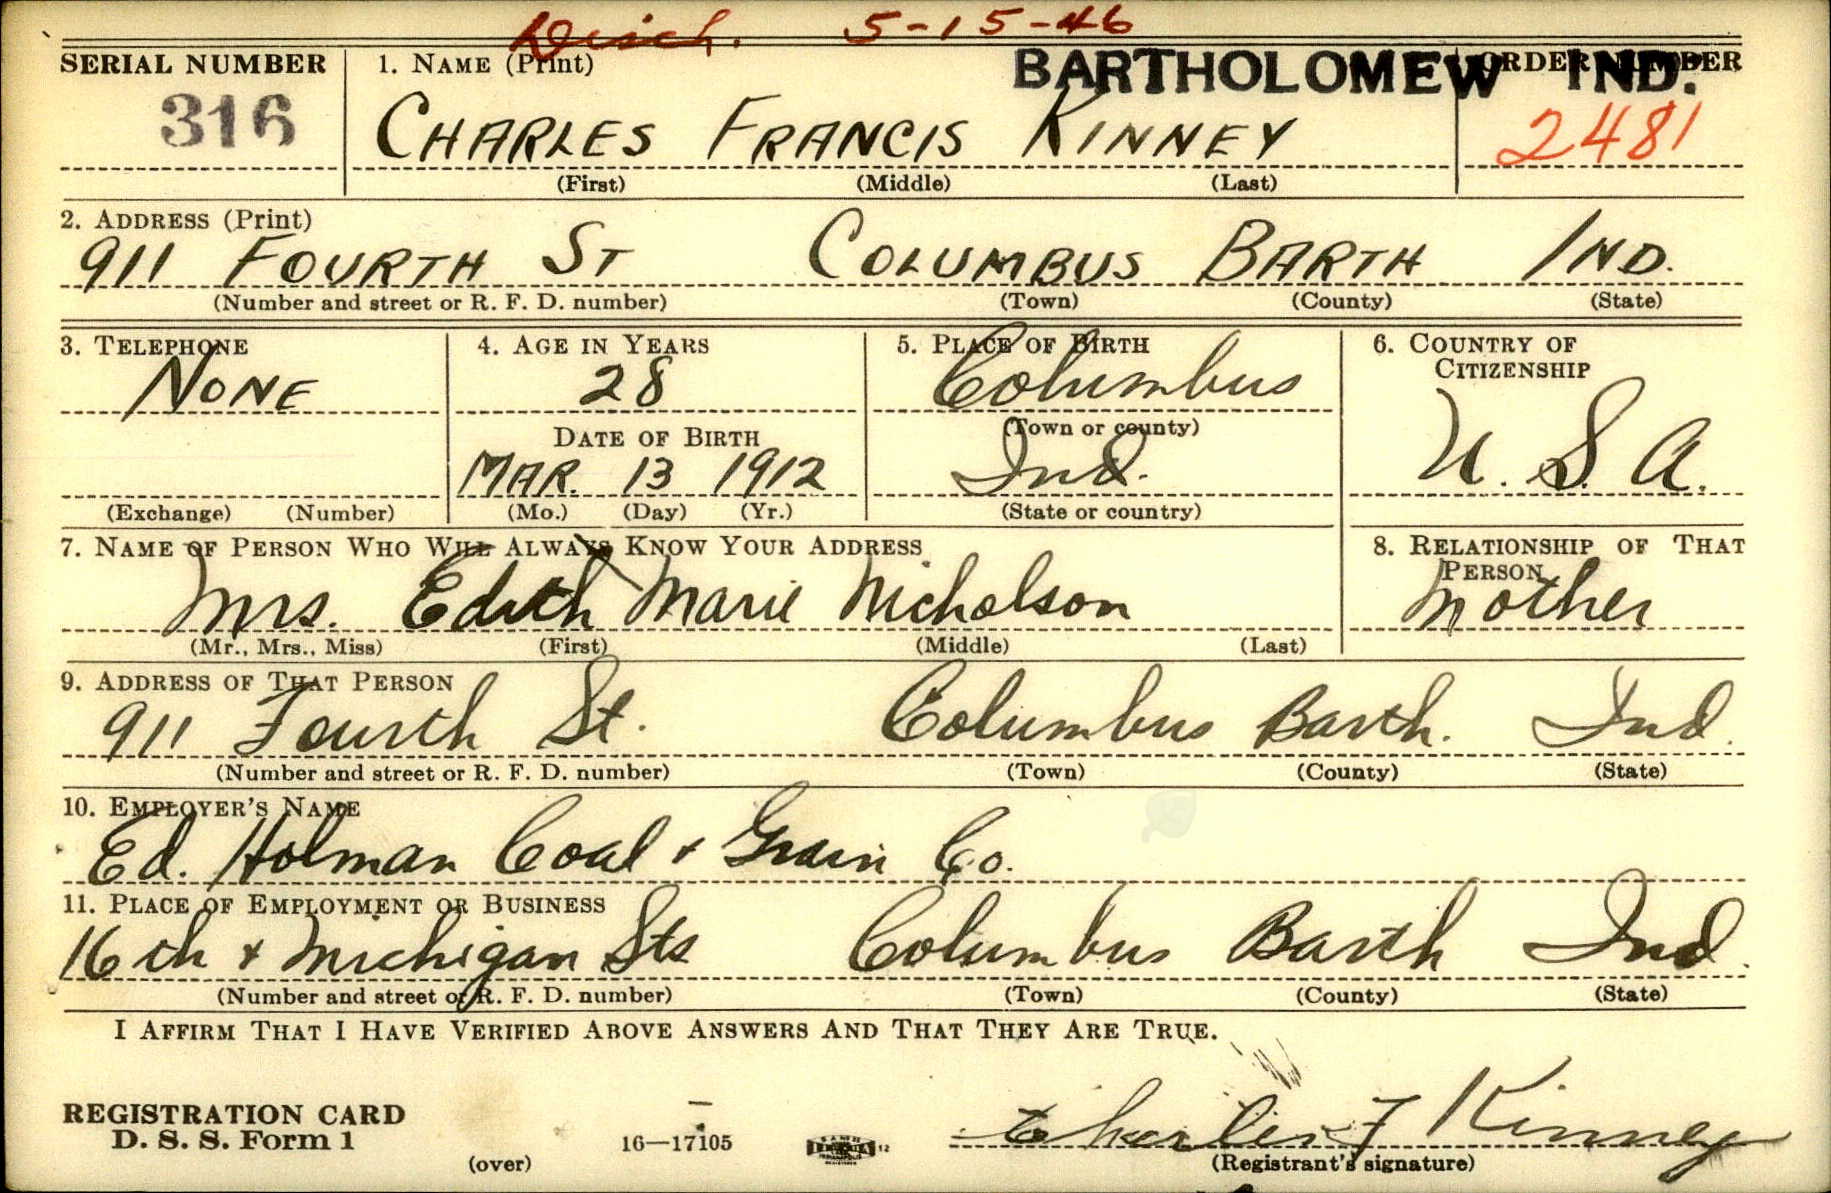 Disch. 5-15-46
SERIAL NUMBER 1. NAME (Print) BARTHOLOMEW IND. ORDER NUMBER
316 CHARLES FRANCIS KINNEY 2481
(First) (Middle) (Last)
2. ADDRESS (Print)
911 FOURTH ST COLUMBUS BARTH IND.
(Number and street or R. F. D. number) (Town) (County) (State)
3. TELEPHONE 4. AGE IN YEARS 5. PLACE OF BIRTH 6. COUNTRY OF
CITIZENSHIP
NONE 28 Columbus
(Town or county)
DATE OF BIRTH
MAR. 13 1912 Ind. U. S. A.
(Exchange) (Number) (Mo.) (Day) (Yr.) (State or country)
7. NAME OF PERSON WHO WILL ALWAYS KNOW YOUR ADDRESS 8. RELATIONSHIP OF THAT
PERSON
Mrs. Edith Marie Nicholson Mother
(Mr., Mrs., Miss) (First) (Middle) (Last)
9. ADDRESS OF THAT PERSON
911 Fourth St. Columbus Barth. Ind.
(Number and street or R. F. D. number) (Town) (County) (State)
10. EMPLOYER'S NAME
Ed. Holman Coal & Grain Co.
11. PLACE OF EMPLOYMENT OR BUSINESS
16th & Michigan Sts Columbus Barth Ind.
(Number and street or R. F. D. number) (Town) (County) (State)
I AFFIRM THAT I HAVE VERIFIED ABOVE ANSWERS AND THAT THEY ARE TRUE.
REGISTRATION CARD
D. S. S. Form 1 16—17105 Charles F Kinney
(over) (Registrant's signature)